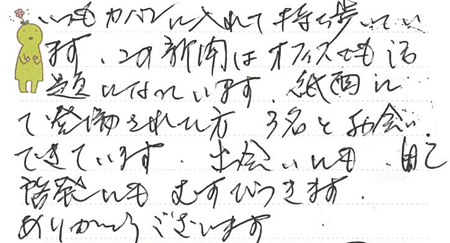 いつもカバンに入れて持ち歩いてい
ます。この新聞はオフィスでも話
題になっています。紙面に
て登場された方 3名と お会い
できています。出会いにも、自己
啓発にも むすびつきます。
ありがとうございます